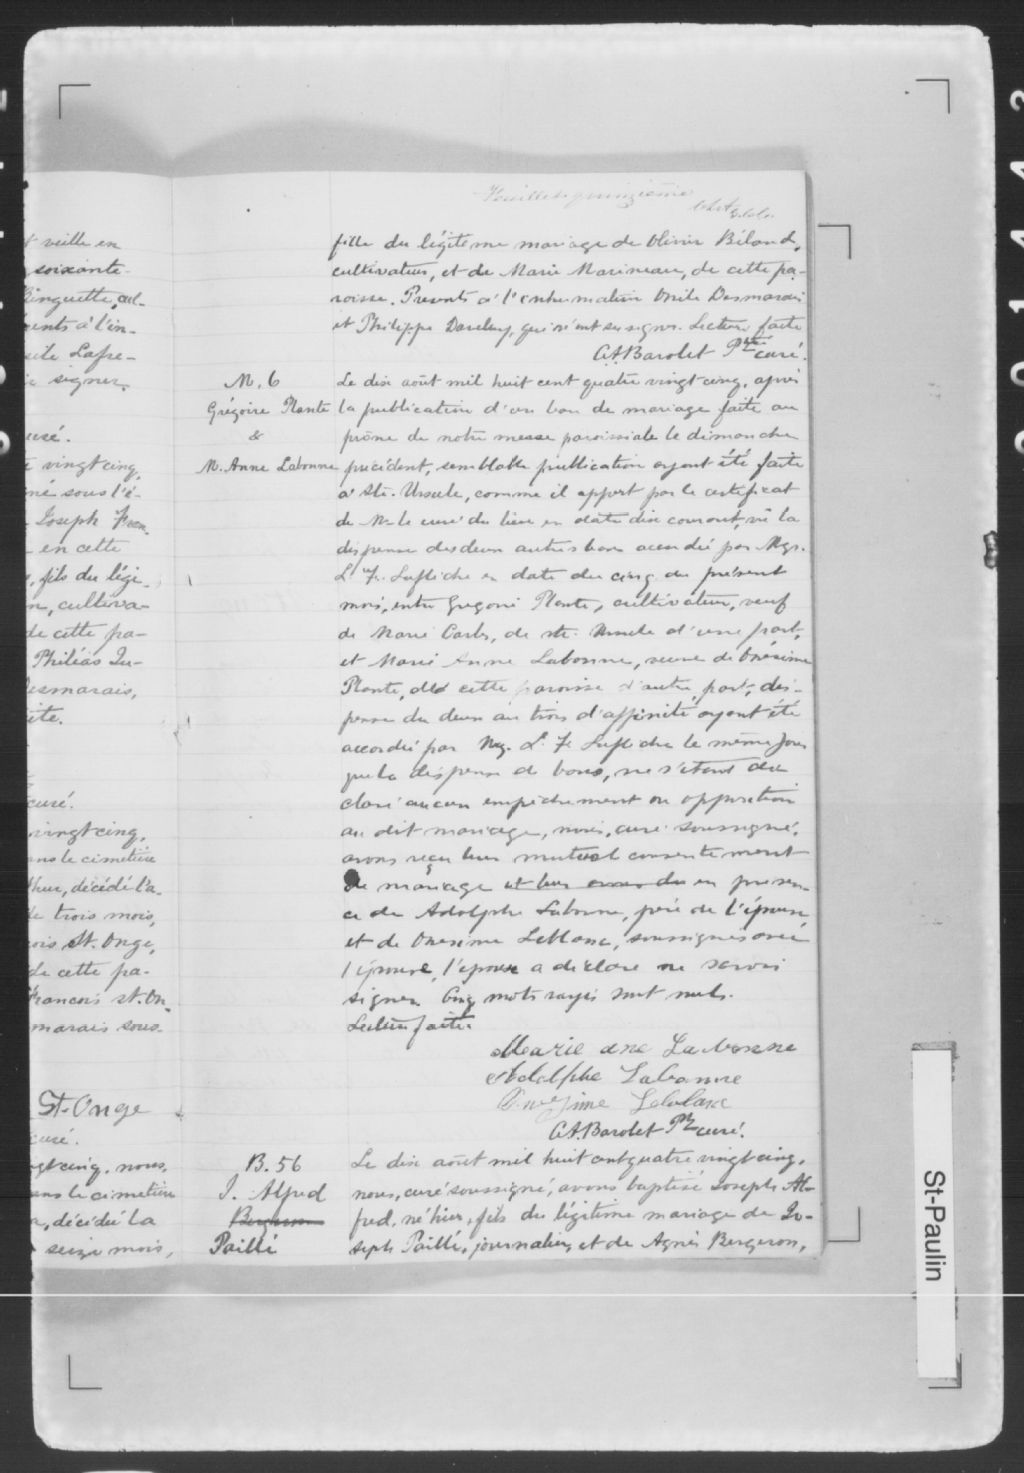 t veille en
soixante-
inguette, cul-
ents à l'in-
Lafre-
signer.
curé.
vingt cinq,
né sous l'é-
Joseph
en cette
, fils du légi-
n, cultiva-
de cette pa-
Philéas
esmarais,
ite.
curé.
vingt cinq,
ans le cimetière
décédé l'a-
de trois mois,
ois St. Onge,
de cette pa-
François St. On-
marais sous-
St-Onge
curé.
gt cinq, nous,
ans le cimetière
a, décédé la
seize mois,
Feuillet quinzième
fille du légitime mariage de Olivier Béland,
cultivateur, et de Marie Marineau, de cette pa-
roisse. Présents à l'inhumation Onile Desmarais
et Philippe Daveluy, qui n'ont su signer. Lecture faite
Ct. Barolet Ptre curé.
M. 6
Grégoire Plante
&
M. Anne Labonne
Le dix août mil huit cent quatre vingt cinq, après
la publication d'un ban de mariage faite au
prône de notre messe paroissiale le dimanche
précédent, semblable publication ayant été faite
à Ste. Ursule, comme il appert par le certificat
de Mr le curé du lieu en date dix courant, vû la
dispense des deux autres bans accordée par Mgr.
L. F. Laflèche en date du cinq du présent
mois, entre Grégoire Plante, cultivateur, veuf
de Marie de Ste. Ursule d'une part,
et Marie Anne Labonne, veuve de Onésime
Plante, de cette paroisse d'autre part, dis-
pense du deux au trois d'affinité ayant été
accordée par Mg. L. F. Laflèche le même jour
que la dispense de bans, ne s'étant dé-
claré aucun empêchement ou opposition
au dit mariage, nous, curé soussigné,
avons reçu leur mutuel consentement
de mariage et leur en présen-
ce de Adolphe Labonne, père de l'épouse
et de Onésime Leblanc, soussignés avec
l'épouse, l'époux a déclaré ne savoir
signer. Cinq mots rayés sont nuls.
Lecture faite.
Marie ane Labonne
Adolphe Labonne
Onesime Leblanc
Ct. Barolet Ptre curé.
B. 56
J. Alfred
Bergeron
Paillé
Le dix août mil huit cent quatre vingt cinq,
nous, curé soussigné, avons baptisé Joseph Al-
fred, né hier, fils du légitime mariage de Jo-
seph Paillé, journalier, et de Agnès Bergeron,
St-Paulin